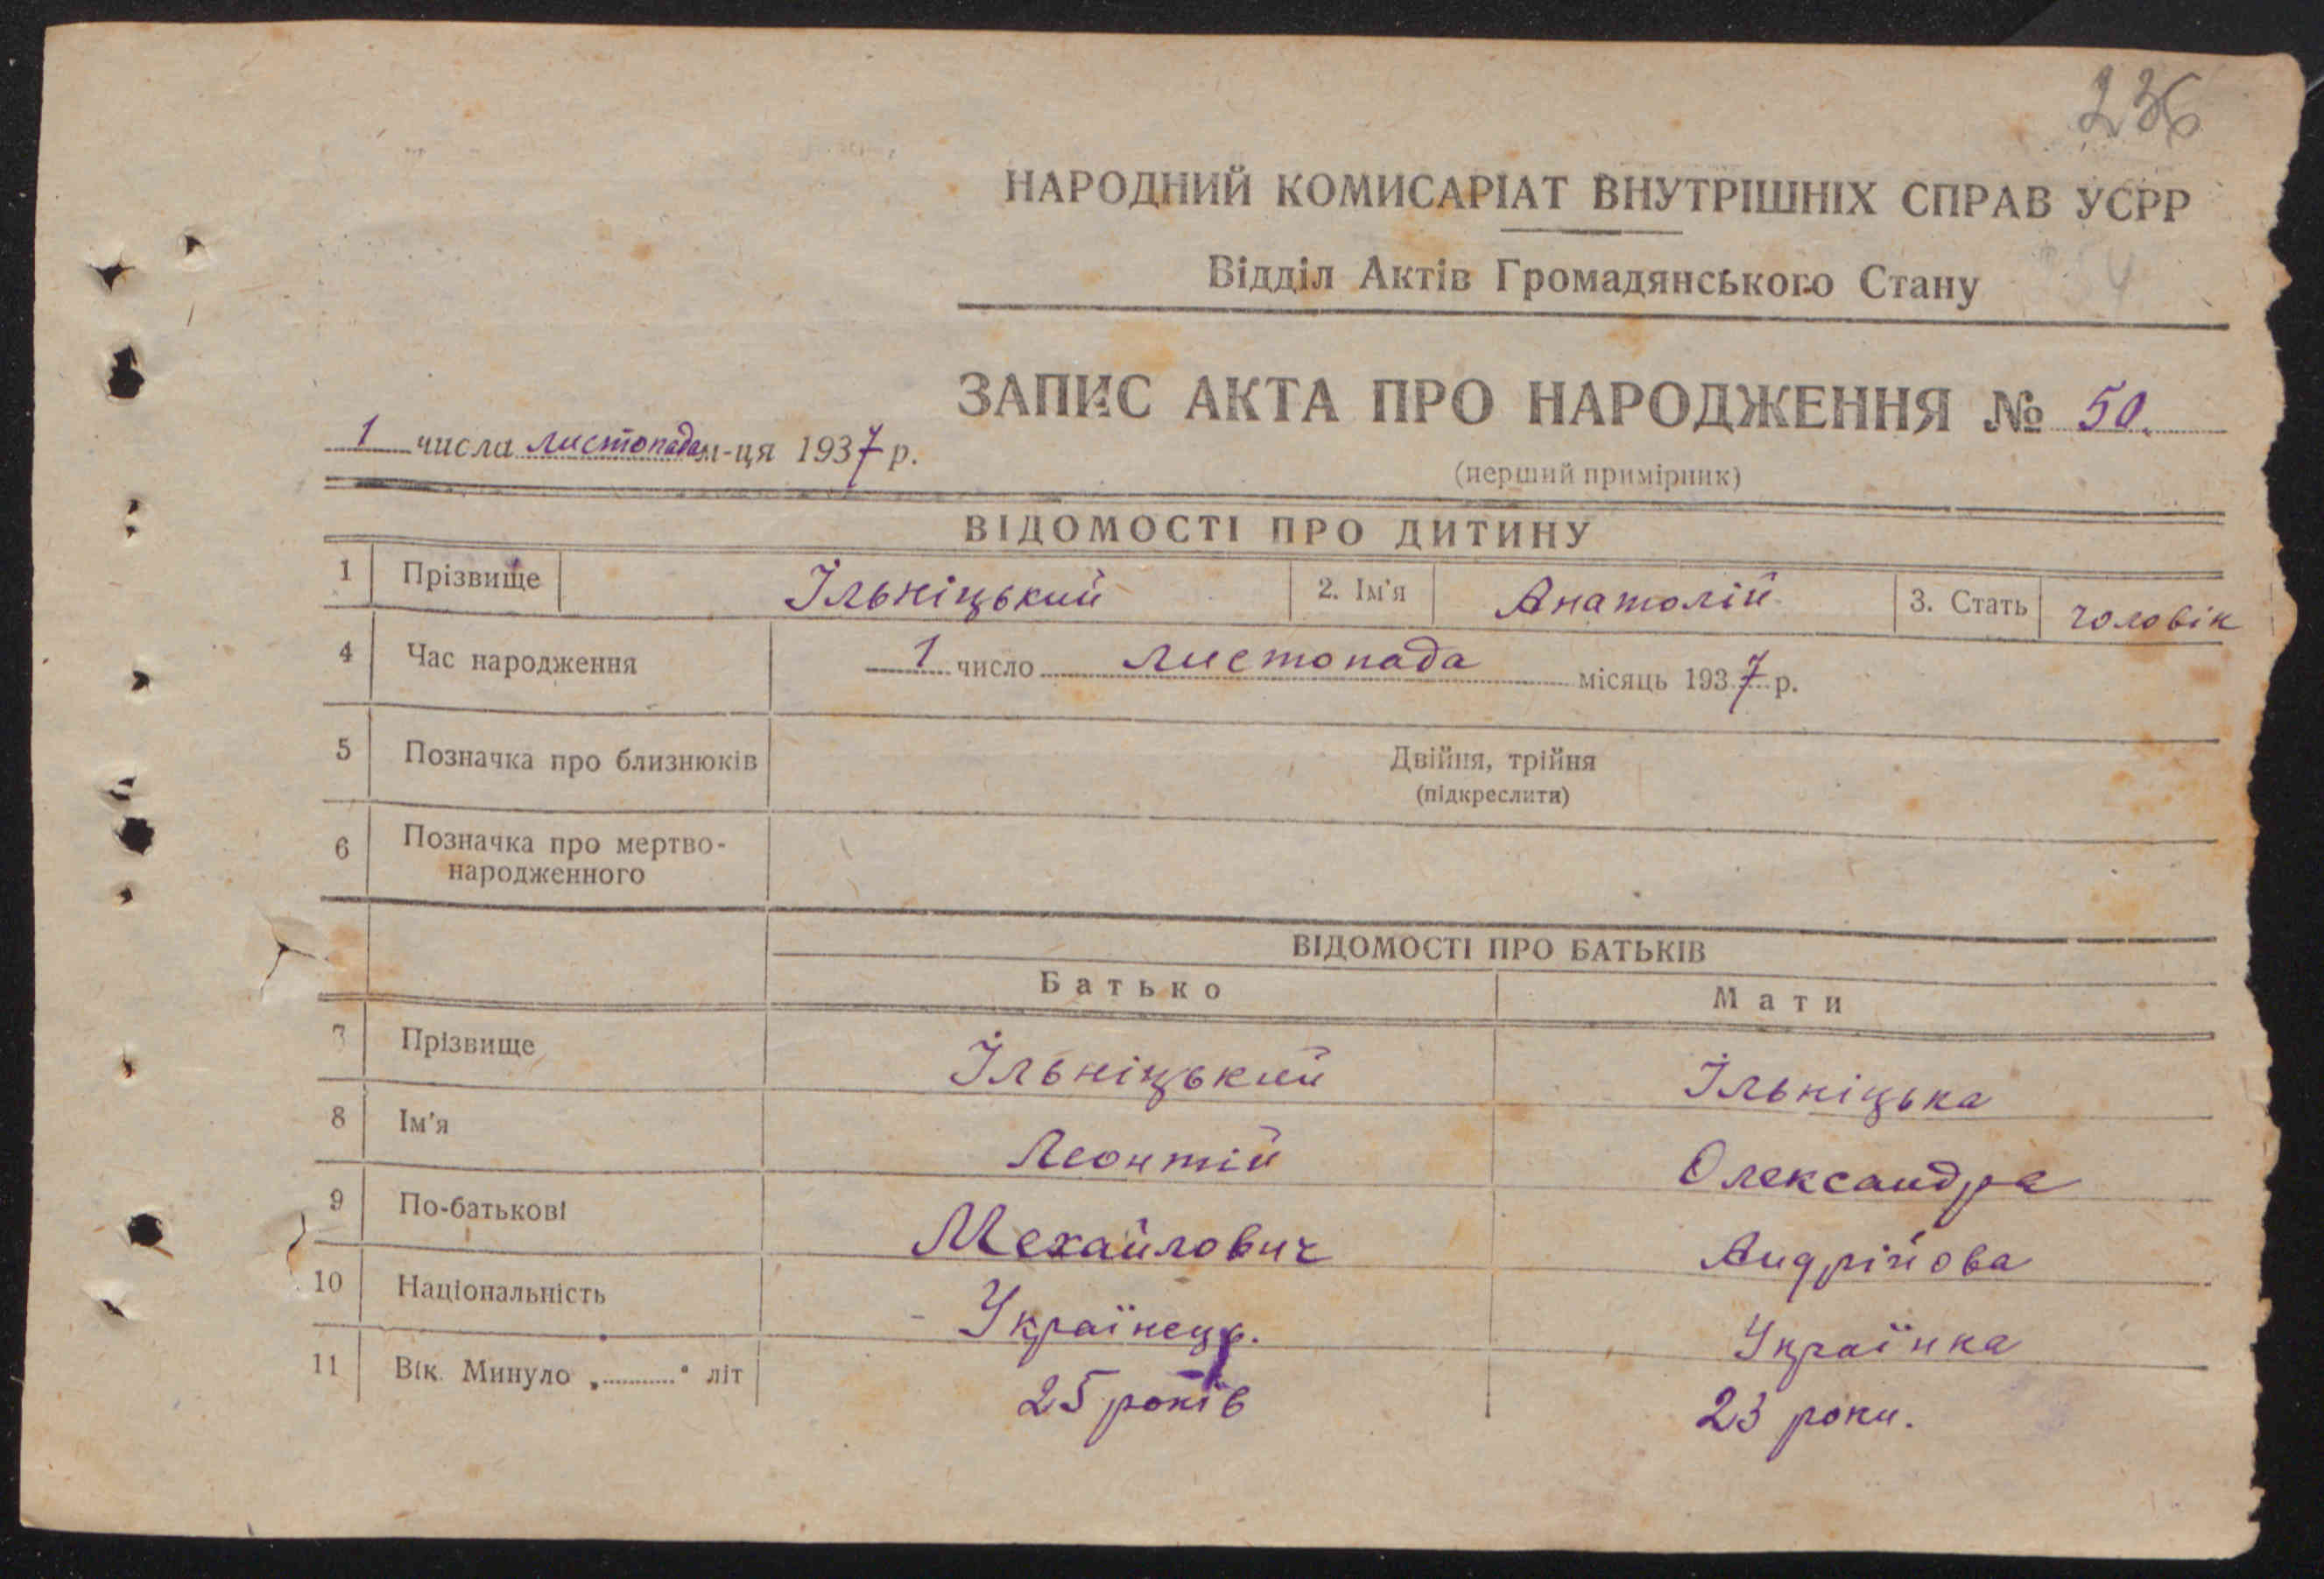 236
НАРОДНИЙ КОМИСАРІАТ ВНУТРІШНІХ СПРАВ УСРР
Відділ Актів Громадянського Стану
ЗАПИС АКТА ПРО НАРОДЖЕННЯ № 50.
1 числа листопада м-ця 1937 р.
(перший примірник)
ВІДОМОСТІ ПРО ДИТИНУ
1 Прізвище Ільніцький 2. Ім'я Анатолій 3. Стать чоловік
4 Час народження 1 число листопада місяць 1937 р.
5 Позначка про близнюків Двійня, трійня
(підкреслити)
6 Позначка про мертво-
народженного
ВІДОМОСТІ ПРО БАТЬКІВ
Батько Мати
7 Прізвище Ільніцький Ільніцька
8 Ім'я Леонтій Олександра
9 По-батькові Мехайлович Андрійова
10 Національність Українець. Українка
11 Вік. Минуло „..........“ літ 25 років 23 роки.